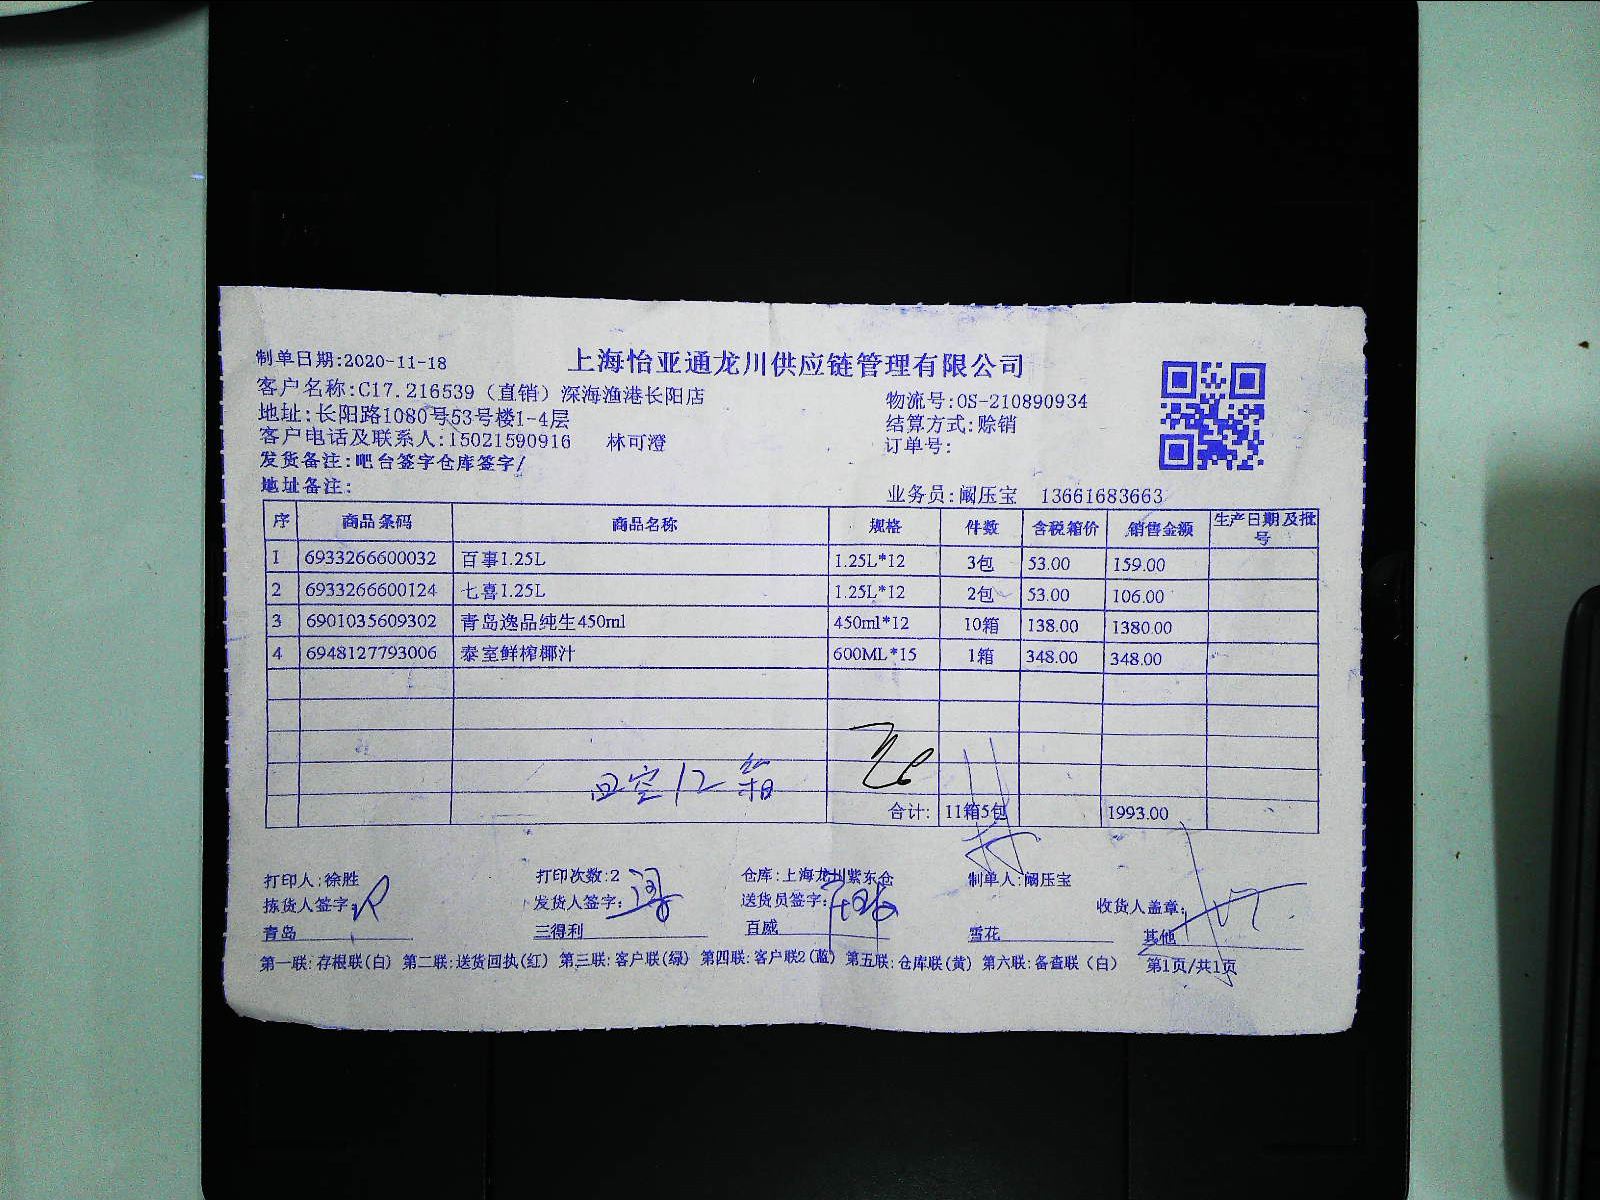 上海怡亚通龙川供应链管理有限公司
制单日期:2020-11-18
客户名称:C17.216539（直销）深海渔港长阳店 物流号:OS-210890934
地址:长阳路1080号53号楼1-4层 结算方式:赊销
客户电话及联系人:15021590916 林可澄 订单号:
发货备注:吧台签字仓库签字/
地址备注: 业务员:阚压宝 13661683663
序 商品条码 商品名称 规格 件数 含税箱价 销售金额 生产日期及批号
1 6933266600032 百事1.25L 1.25L*12 3包 53.00 159.00
2 6933266600124 七喜1.25L 1.25L*12 2包 53.00 106.00
3 6901035609302 青岛逸品纯生450ml 450ml*12 10箱 138.00 1380.00
4 6948127793006 泰室鲜榨椰汁 600ML*15 1箱 348.00 348.00
回空12箱
合计: 11箱5包 1993.00
打印人:徐胜 打印次数:2 仓库:上海龙川紫东仓 制单人:阚压宝
拣货人签字: 发货人签字: 送货员签字: 收货人盖章:
青岛 三得利 百威 雪花 其他
第一联:存根联(白) 第二联:送货回执(红) 第三联:客户联(绿) 第四联:客户联2(蓝) 第五联:仓库联(黄) 第六联:备查联（白） 第1页/共1页